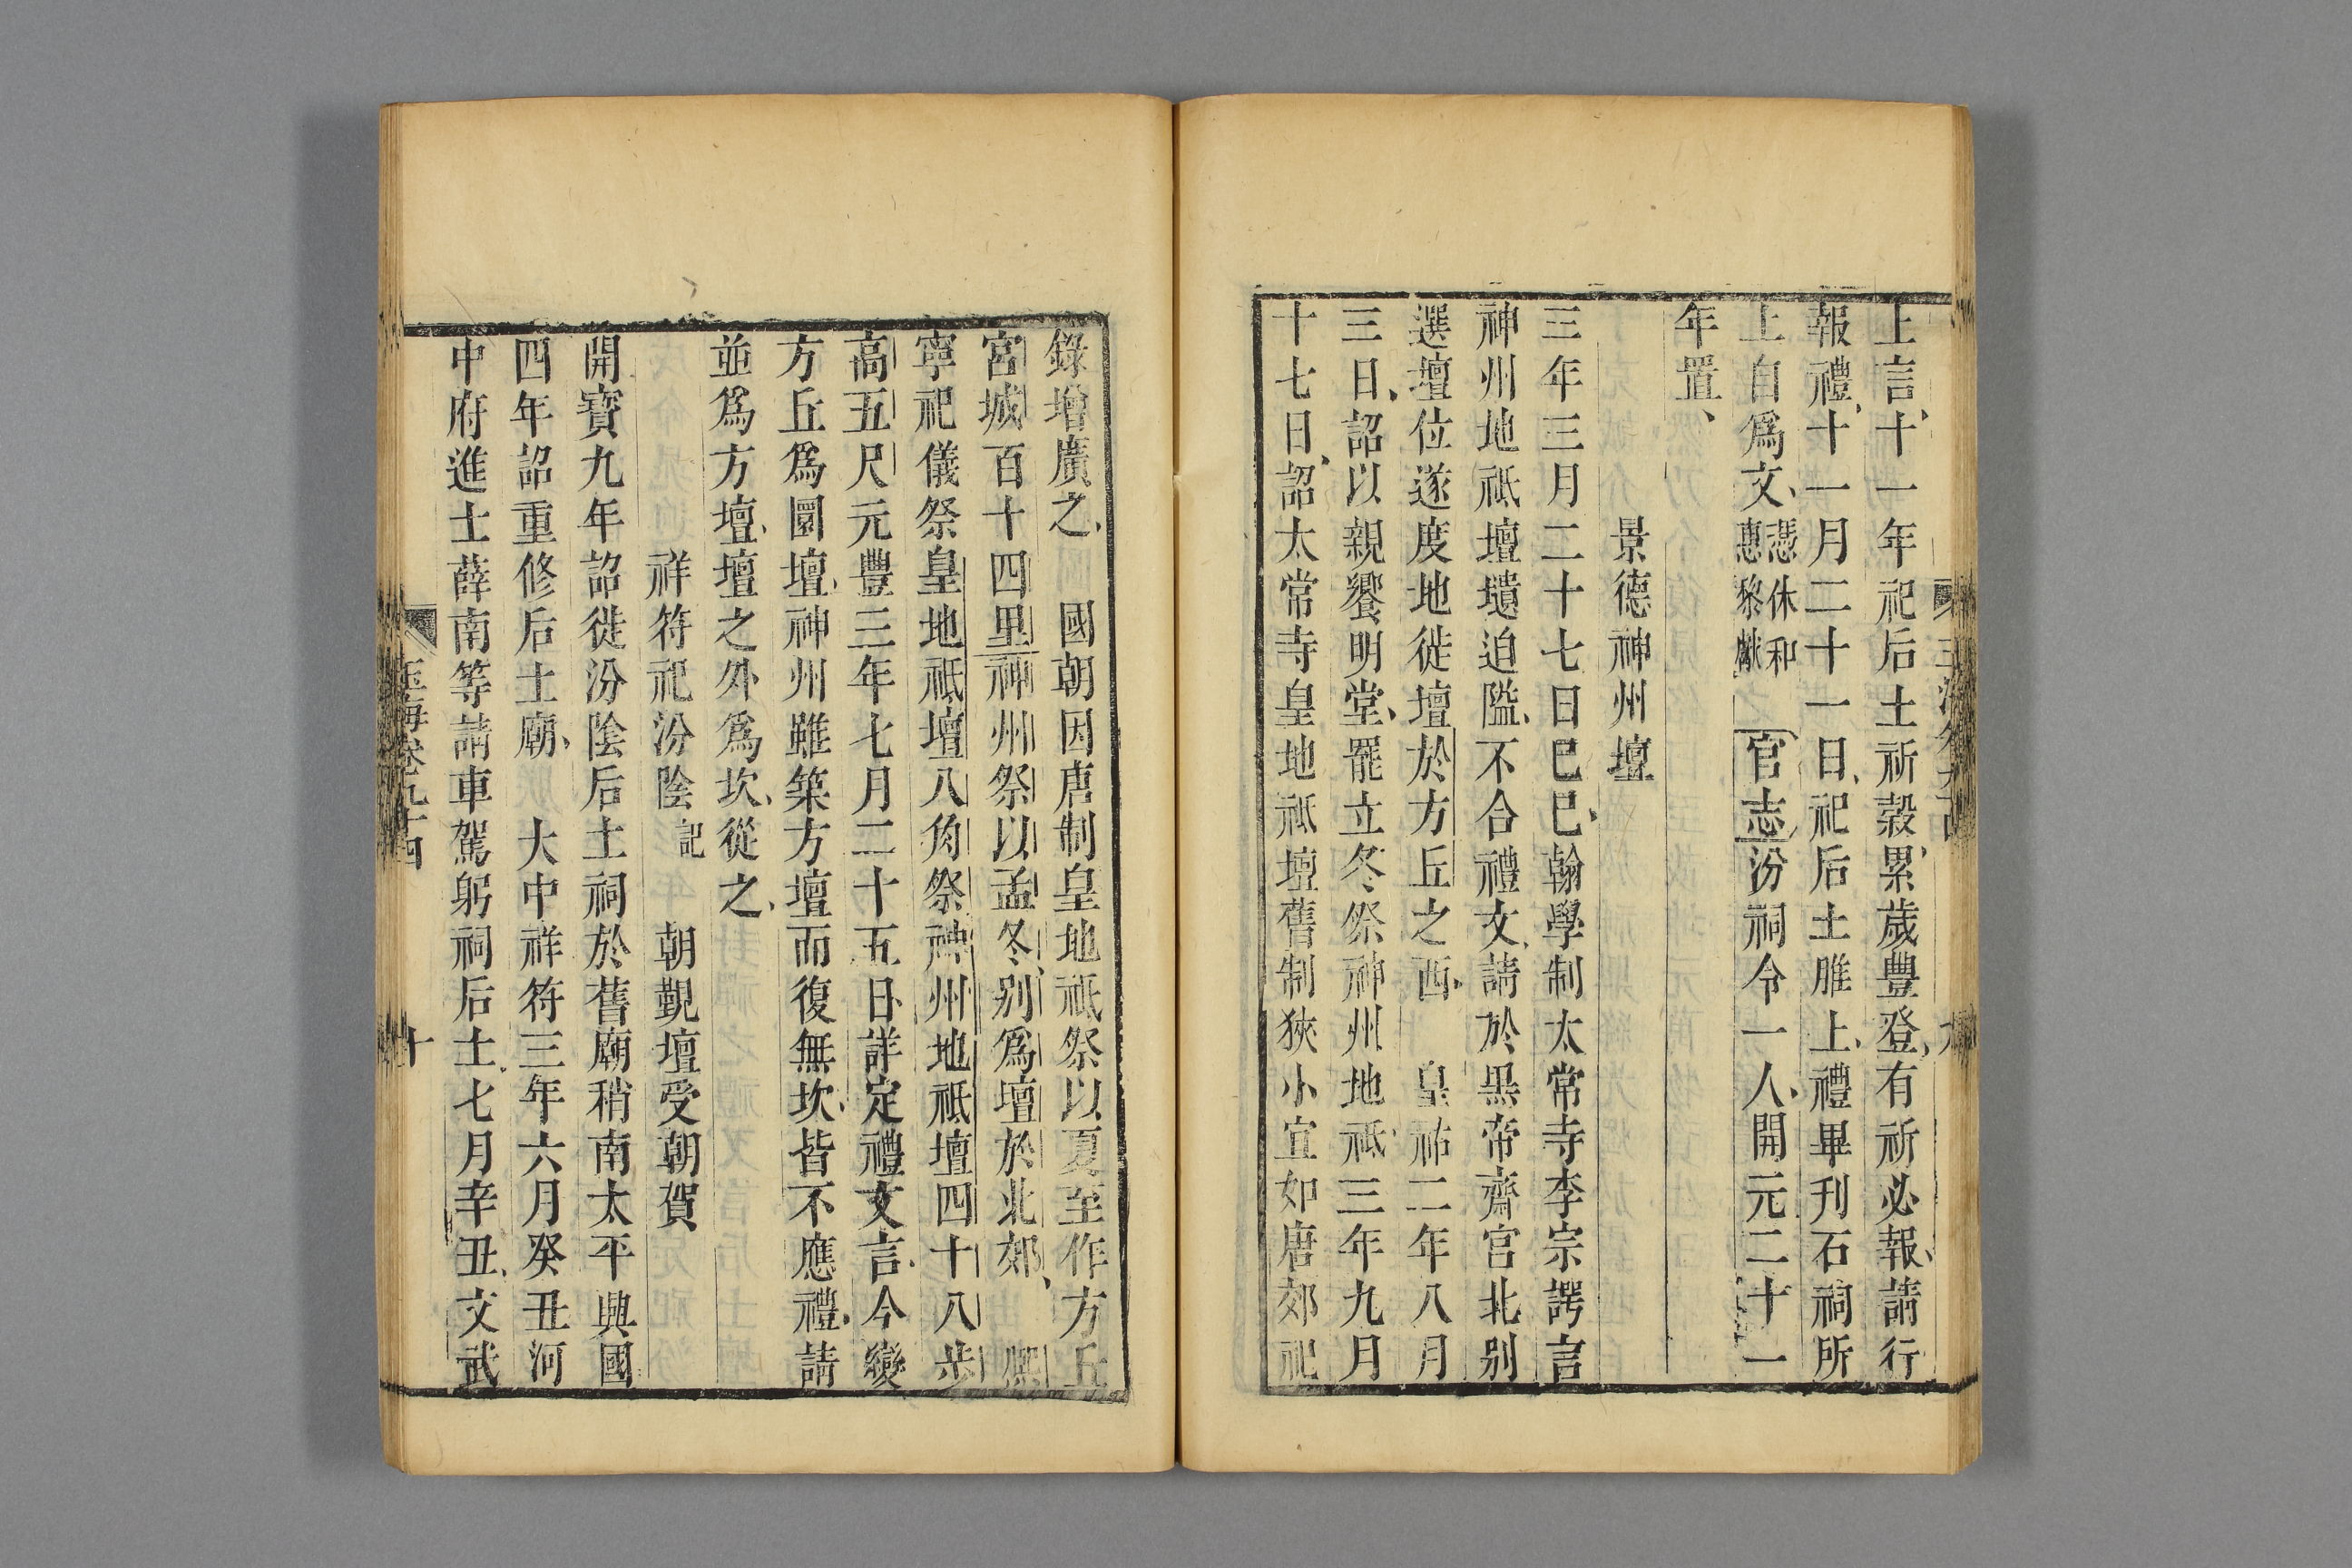 上言十一年祀后土祈穀累歲豐登有祈必報請行
報禮十一月二十一日祀后土脽上禮畢刊石祠所
上自爲文憑休和惠黎獻官志汾祠令一人開元二十一
年置
景德神州壇
三年三月二十七日巳巳翰學制太常寺李宗諤言
神州地祗壇壝迫隘不合禮文請於黒帝齋宮北別
選壇位遂度地徙壇於方丘之西皇祐二年八月
三日詔以親饗明堂罷立冬祭神州地祗三年九月
十七日詔太常寺皇地祗壇舊制狹小宜如唐郊祀
錄增廣之國朝因唐制皇地祗祭以夏至作方丘
宮城百十四里神州祭以孟冬別爲壇於北郊熙
寧祀儀祭皇地祗壇八角祭神州地祗壇四十八步
高五尺元豐三年七月二十五日詳定禮文言今變
方丘爲圜壇神州雖築方壇而復無坎皆不應禮請
並爲方壇壇之外爲坎從之
祥符祀汾陰記朝覲壇受朝賀
開寶九年詔徙汾陰后土祠於舊廟稍南太平興國
四年詔重修后土廟大中祥符三年六月癸丑河
中府進士薛南等請車駕躬祠后土七月辛丑文武
玉海卷九十四
十